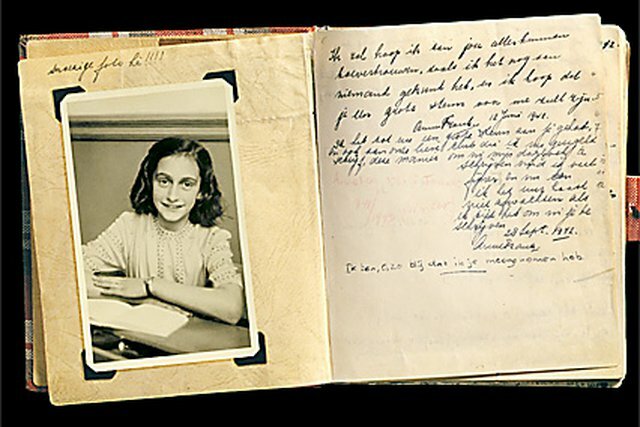 snoezige foto hè!!!!
Ik zal hoop ik aan jou alles kunnen
toevertrouwen, zoals ik het nog aan
niemand gekund heb, en ik hoop dat
je een grote steun voor me zult zijn.
Anne Frank. 12 Juni 1942.
Ik heb tot nu een grote steun aan je gehad,
en ook aan onze lieve club die ik nu geregeld
schrijf, deze manier om in mijn dagboek te
schrijven vind ik veel
fijner en nu kan
ik het uur haast
niet afwachten als
ik tijd heb om in je te
schrijven
28 Sept. 1942.
Anne Frank
Ik ben, o, zo blij dat ik je meegenomen heb.